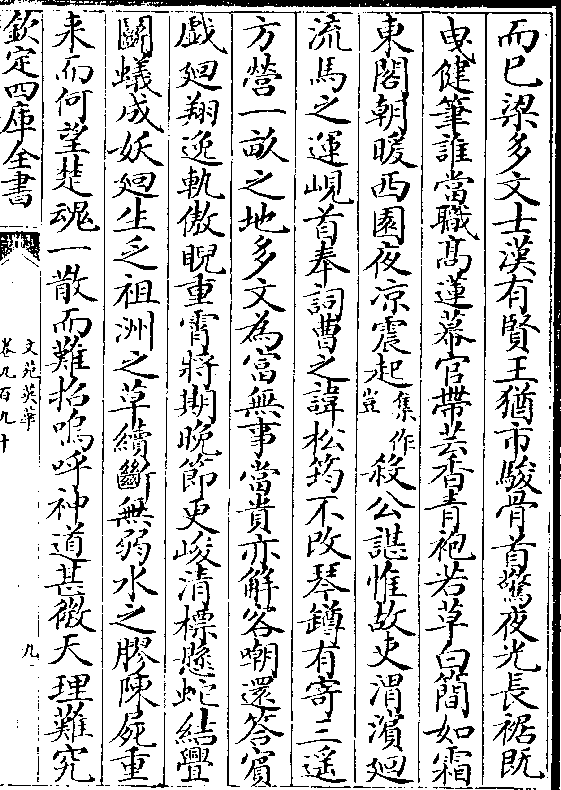 而已梁多文士漢有賢王猶市駿骨首驚夜光長裾既
曳健筆誰當職髙蓮幕官帶芸香青袍若草白簡如霜
東閣朝暖西園夜凉震起集作豈殺公諶惟故吏渭濱廻
流馬之運峴首奉詞曹之諱松筠不改琴罇有寄三遥
方營一畝之地多文為富無事當貴亦解客嘲還答賔
戲廻翔逸軌傲睨重霄將期晩節更峻清標懸蛇結舋
鬭蟻成妖廻生乏祖洲之草續斷無弱水之膠陳屍重
来而何望楚魂一散而難招嗚呼神道甚微天理難究
欽定四庫全書
文苑英華
卷九百九十
九